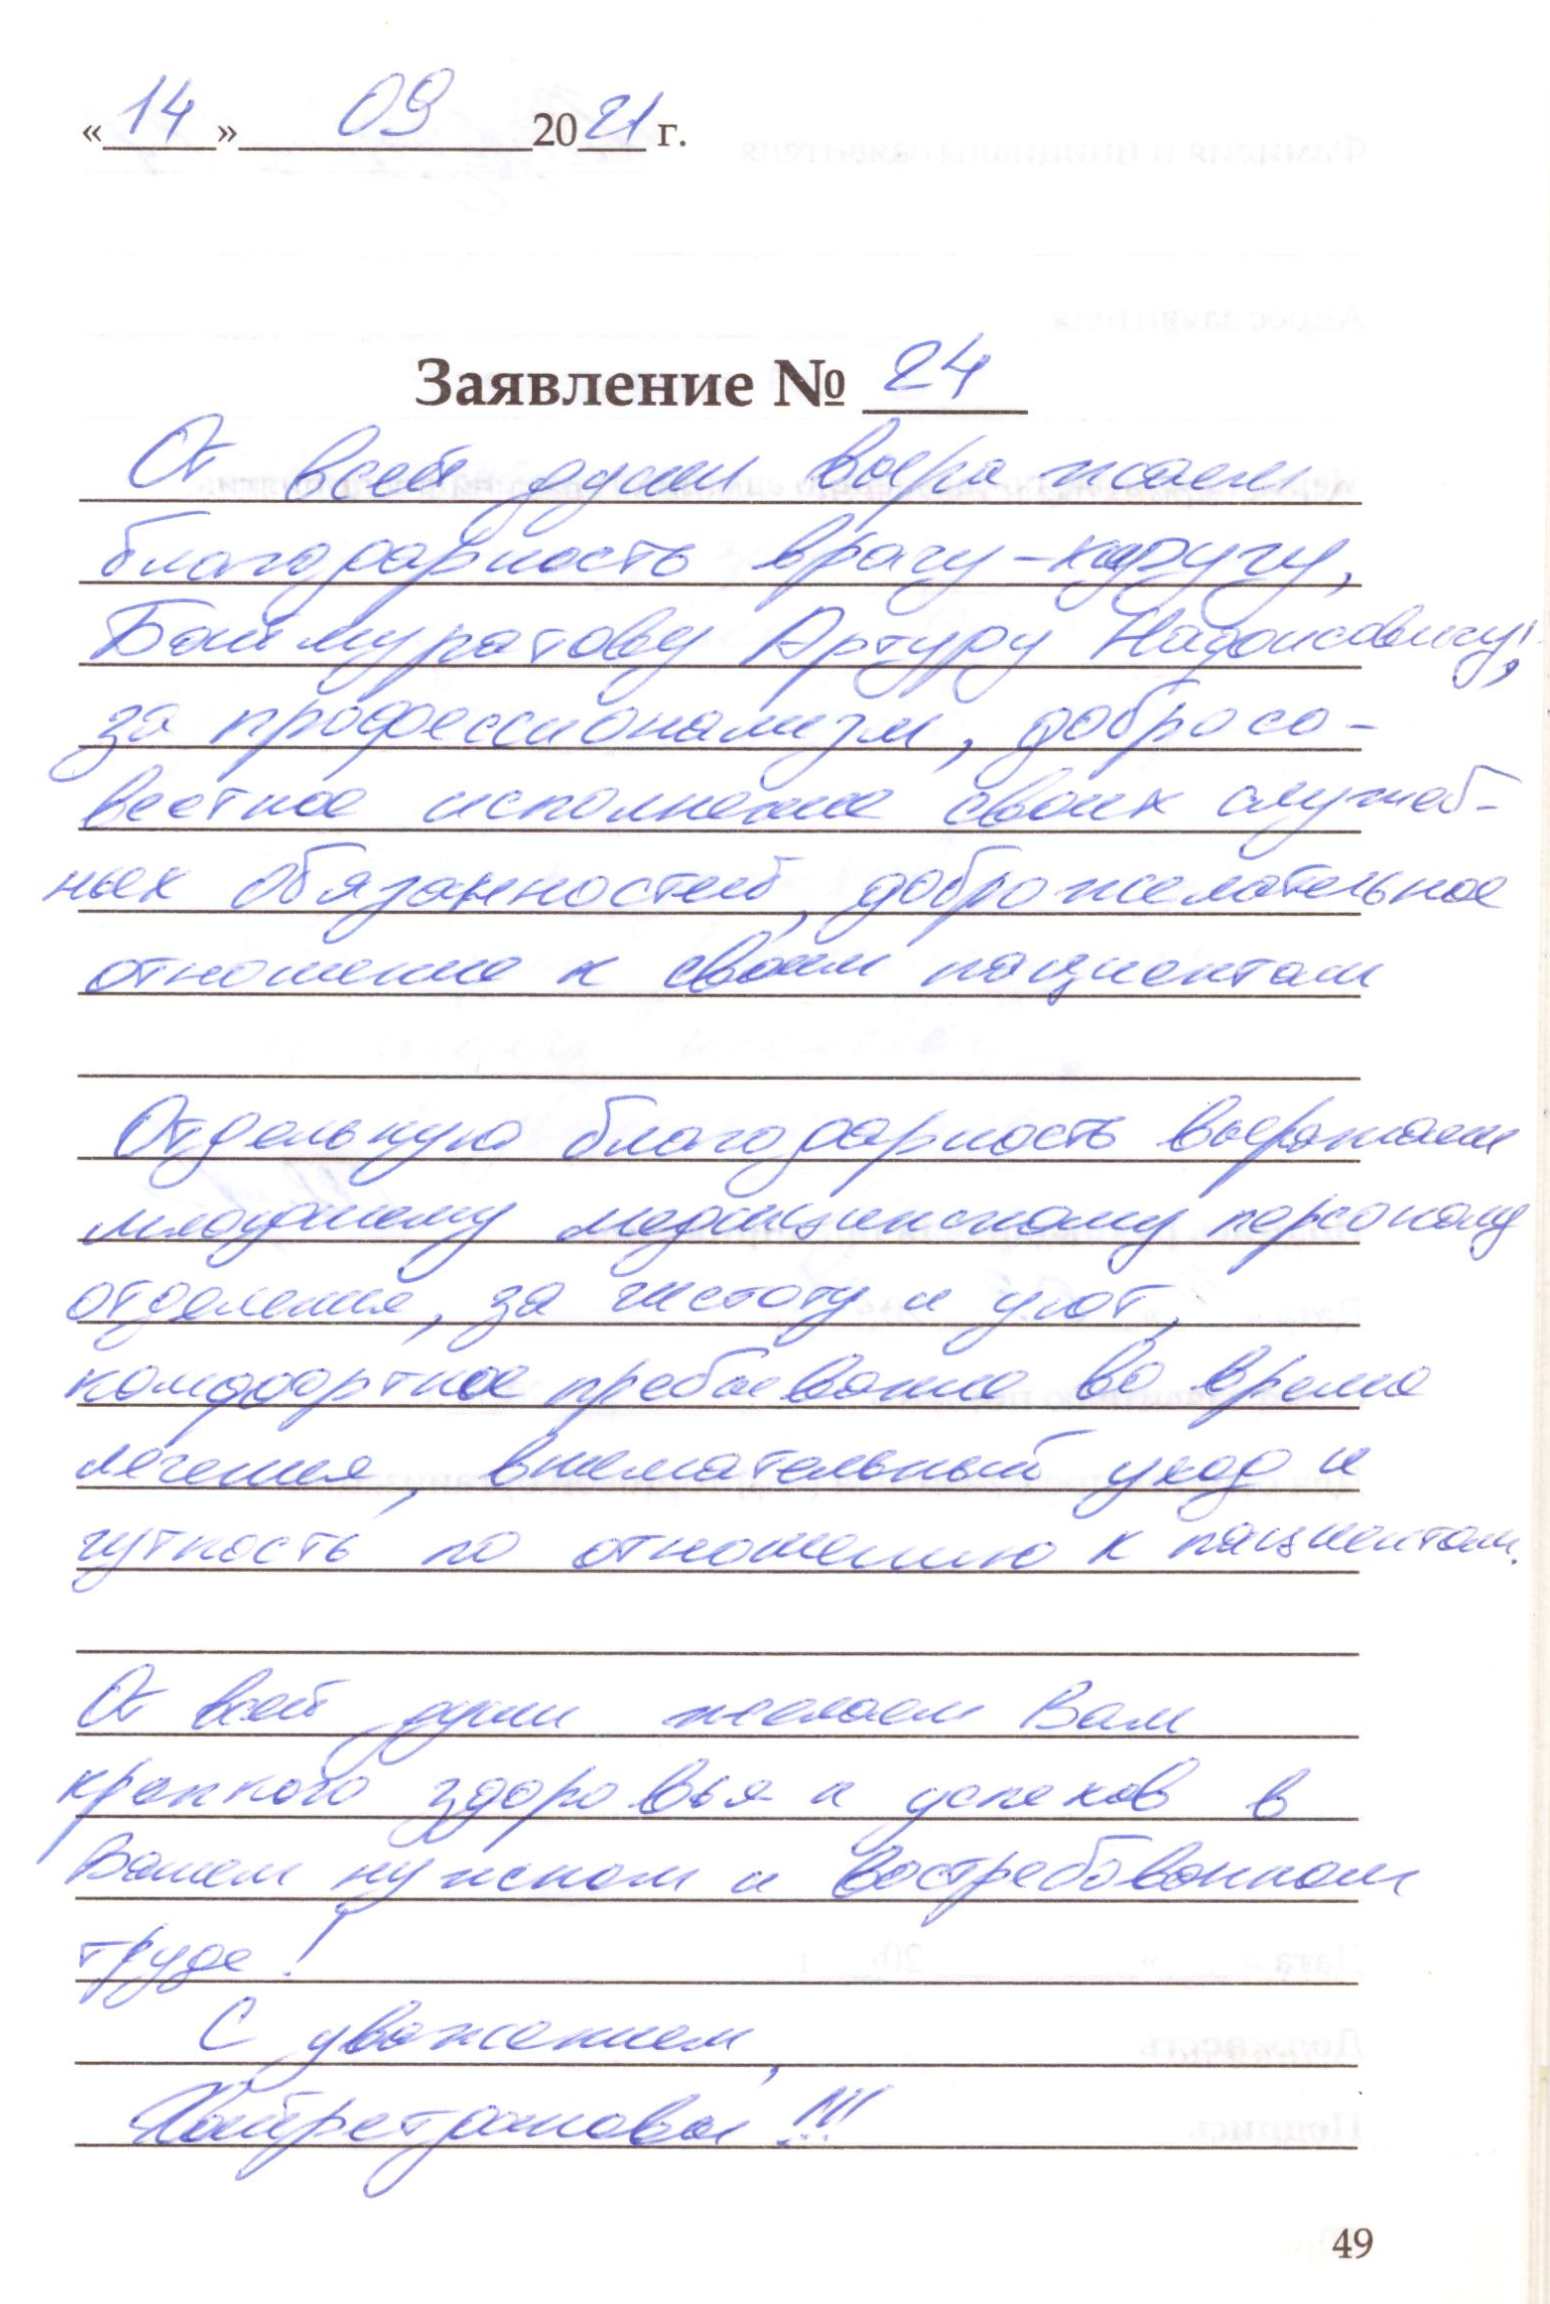 «14» 09 2021 г.
Заявление № 24
От всей души выражаем
благодарность врачу-хирургу,
Баймуратову Артуру
за профессионализм, добросо-
вестное исполнение своих служеб-
ных обязанностей, доброжелательное
отношение к своим пациентам
Отдельную благодарность выражаем
младшему медицинскому персоналу
отделения, за чистоту и уют,
комфортное пребывание во время
лечения, внимательный уход и
чуткость по отношению к пациентам.
От всей души желаем Вам
крепкого здоровья и успехов в
Вашем нужном и востребованном
труде!
С уважением,
!!!
49